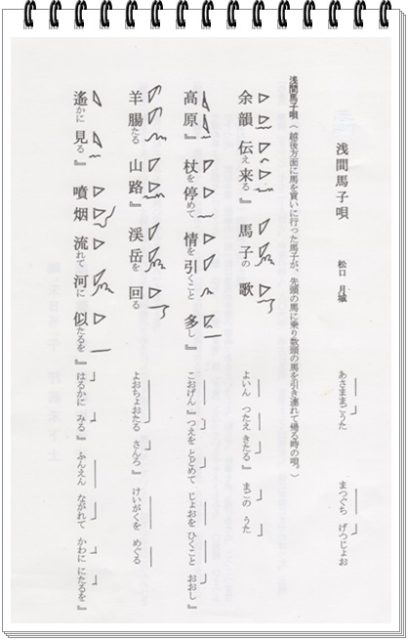 浅間馬子唄 松口 月城 あさままごうた まつぐち げつじょお
浅間馬子唄(越後方面に馬を買いに行った馬子が、先頭の馬に乗り数頭の馬を引き連れて帰る時の唄。)
余韻 伝え来る』 馬子の 歌 よいん つたえ きたる』 まごの うた
高原』 杖を停めて 情を引くこと 多し』 こおげん』 つえを とどめて じょおを ひくこと おおし』
羊腸たる 山路』 渓岳を 回る よおちょおたる さんろ』 けいがくを めぐる
遙かに 見る』 噴烟 流れて 河に 似たるを』 はるかに みる』 ふんえん ながれて かわに にたるを』